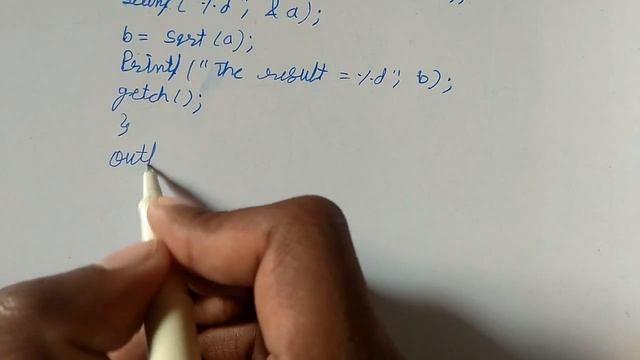 scanf("%d", &a);
b = sqrt(a);
Printf("The result = %d", b);
getch();
}
out